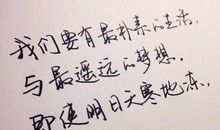 我们要有最朴素的生活,
与最遥远的梦想.
即使明日天寒地冻,